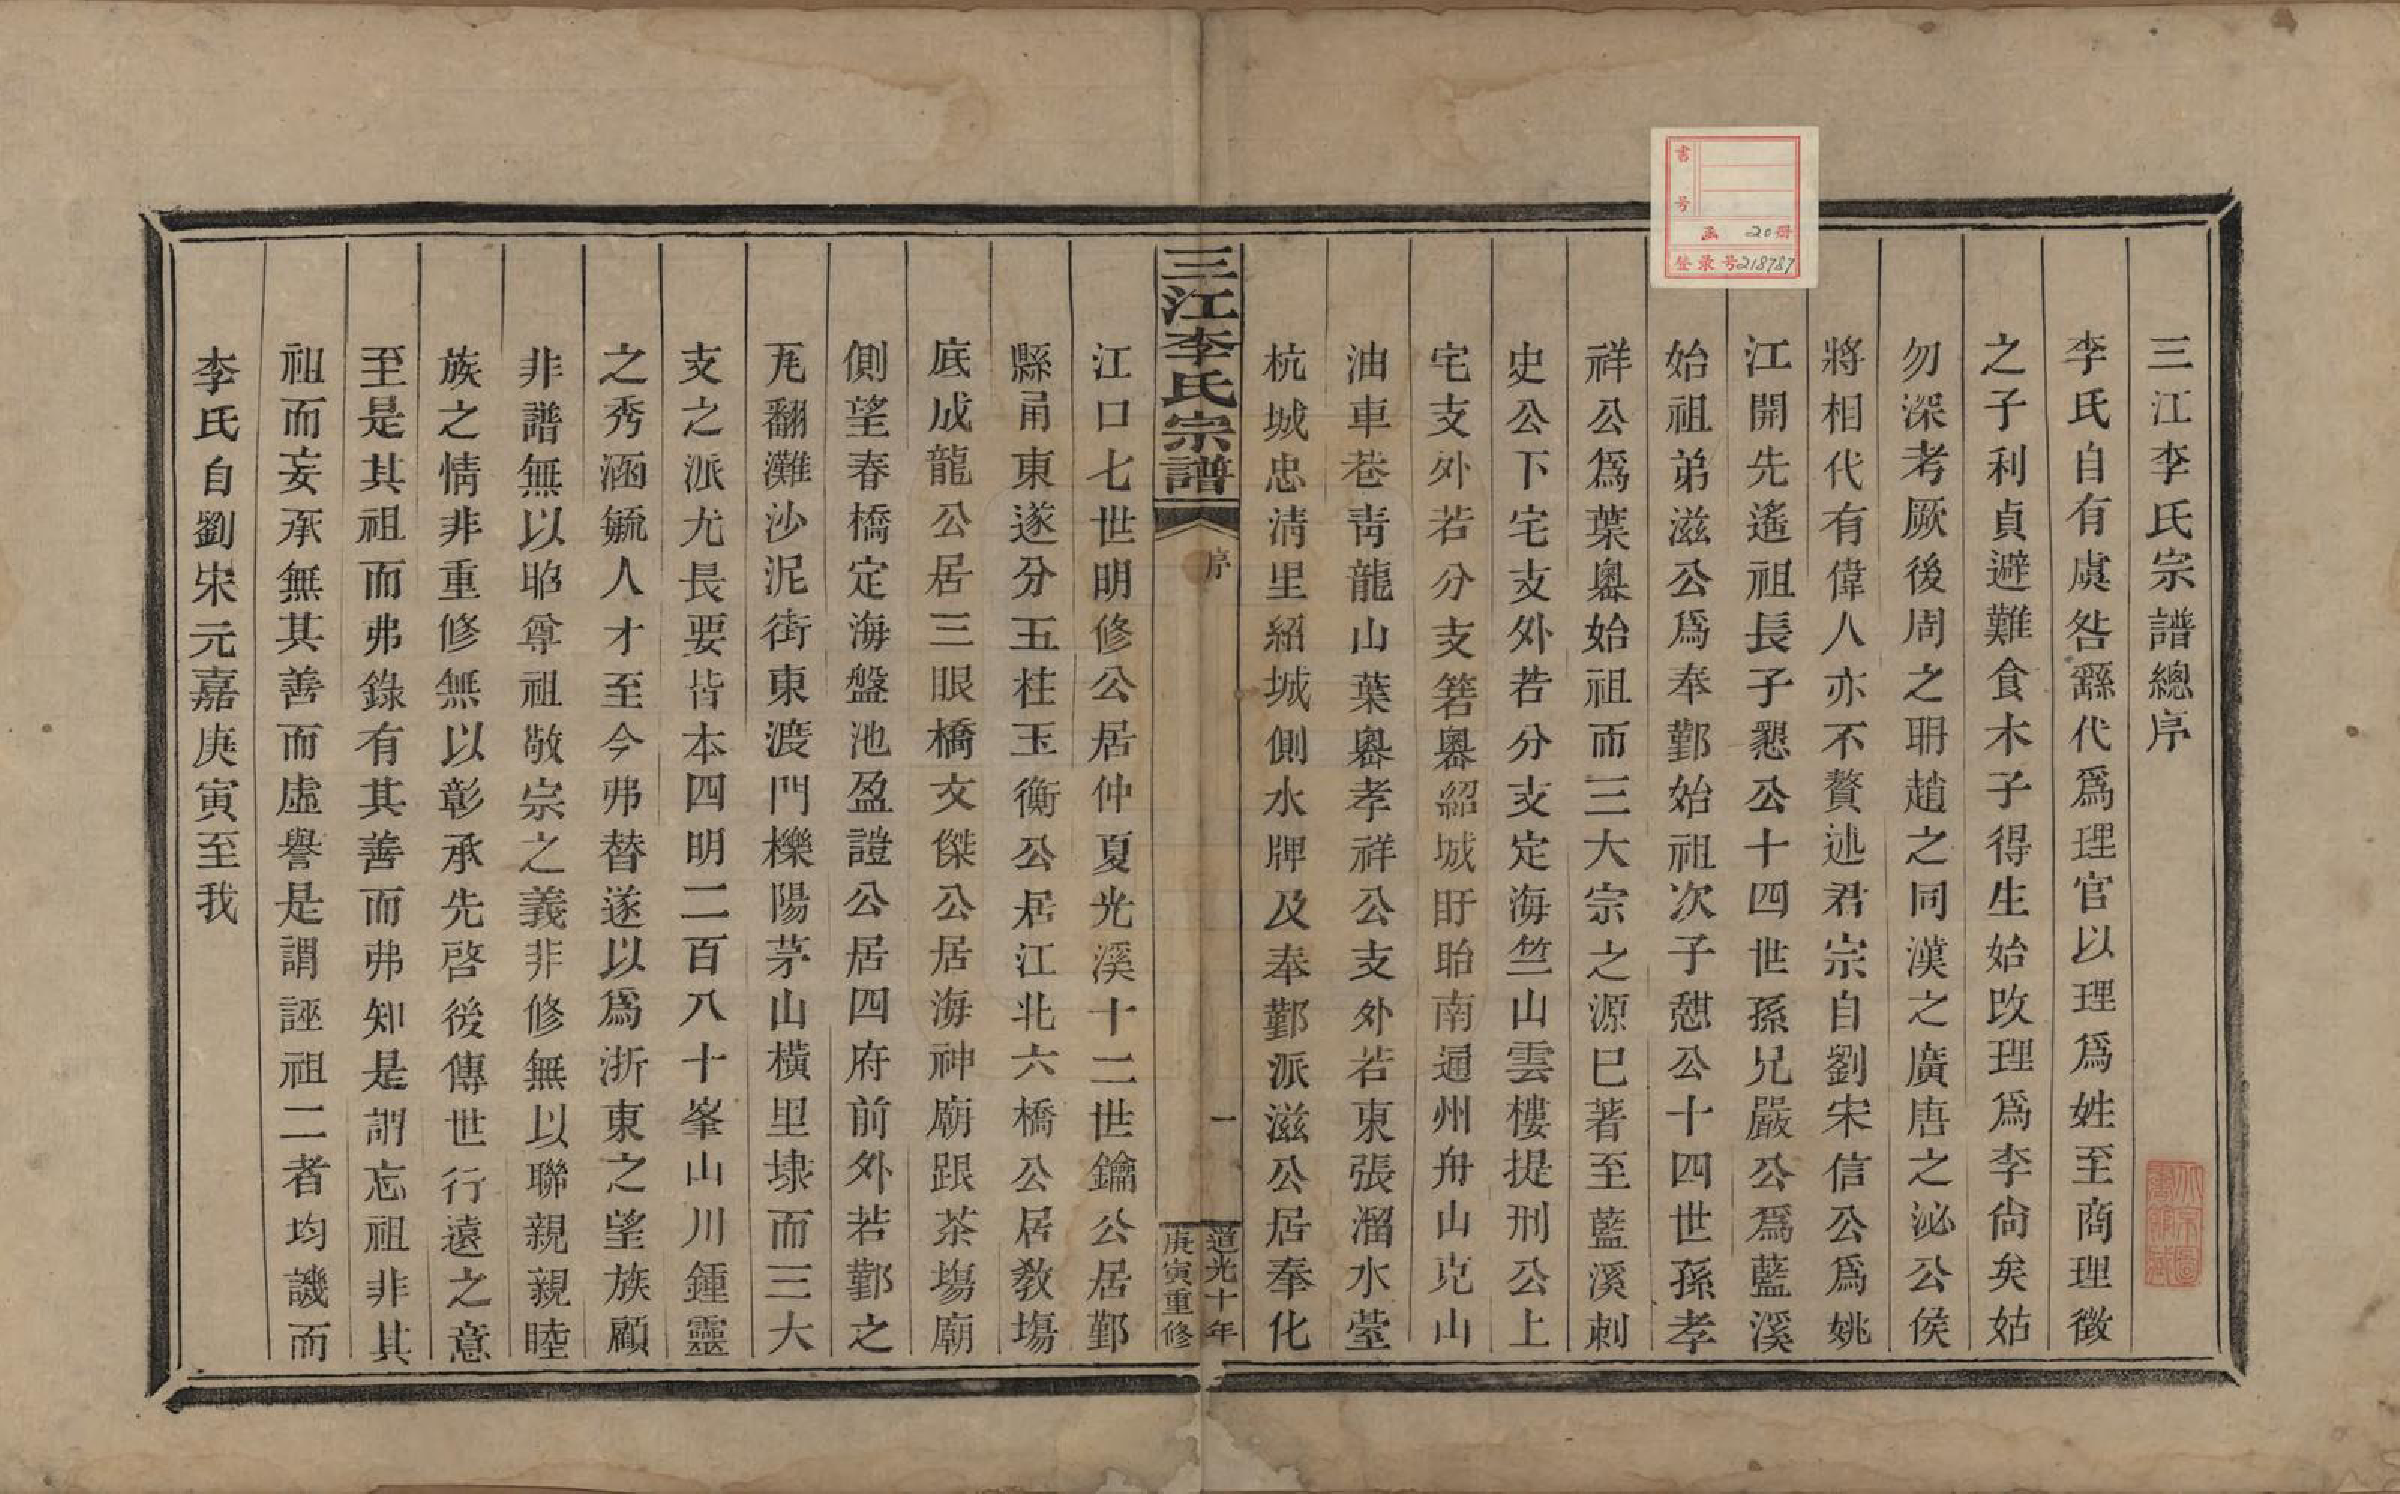 三江李氏宗譜總序
李氏自有虞咎繇代爲理官以理爲姓至商理徵
之子利貞避難食木子得生始改理爲李尙矣姑
勿深考厥後周之耼趙之同漢之廣唐之泌公侯
將相代有偉人亦不贅述君宗自劉宋信公爲姚
江開先遙祖長子懇公十四世孫兄嚴公爲藍溪
始祖弟滋公爲奉鄞始祖次子憇公十四世孫孝
祥公爲葉嶴始祖而三大宗之源已著至藍溪刺
史公下宅支外若分支定海竺山雲樓提刑公上
宅支外若分支箬嶴紹城盱眙南通州舟山克山
油車巷靑龍山葉嶴孝祥公支外若東張溜水塋
杭城忠淸里紹城側水牌及奉鄞派滋公居奉化
三江李氏宗譜
序
一
道光十年
庚寅重修
江口七世明修公居仲夏光溪十二世鑰公居鄞
縣甬東遂分五柱玉衡公居江北六橋公居敎塲
底成龍公居三眼橋文傑公居海神廟跟茶塲廟
側望春橋定海盤池盈𧫷公居四府前外若鄞之
㲉翻灘沙泥街東渡門櫟陽茅山橫里埭而三大
支之派尤長要皆本四明二百八十峯山川鍾靈
之秀涵毓人才至今弗替遂以爲浙東之望族顧
非譜無以昭尊祖敬宗之義非修無以聯親親睦
族之情非重修無以彰承先啓後傳世行遠之意
至是其祖而弗錄有其善而弗知是謂忘祖非其
祖而妄承無其善而虛譽是謂誣祖二者均譏而
李氏自劉宋元嘉庚寅至我
书号
函 20册
登录号218787